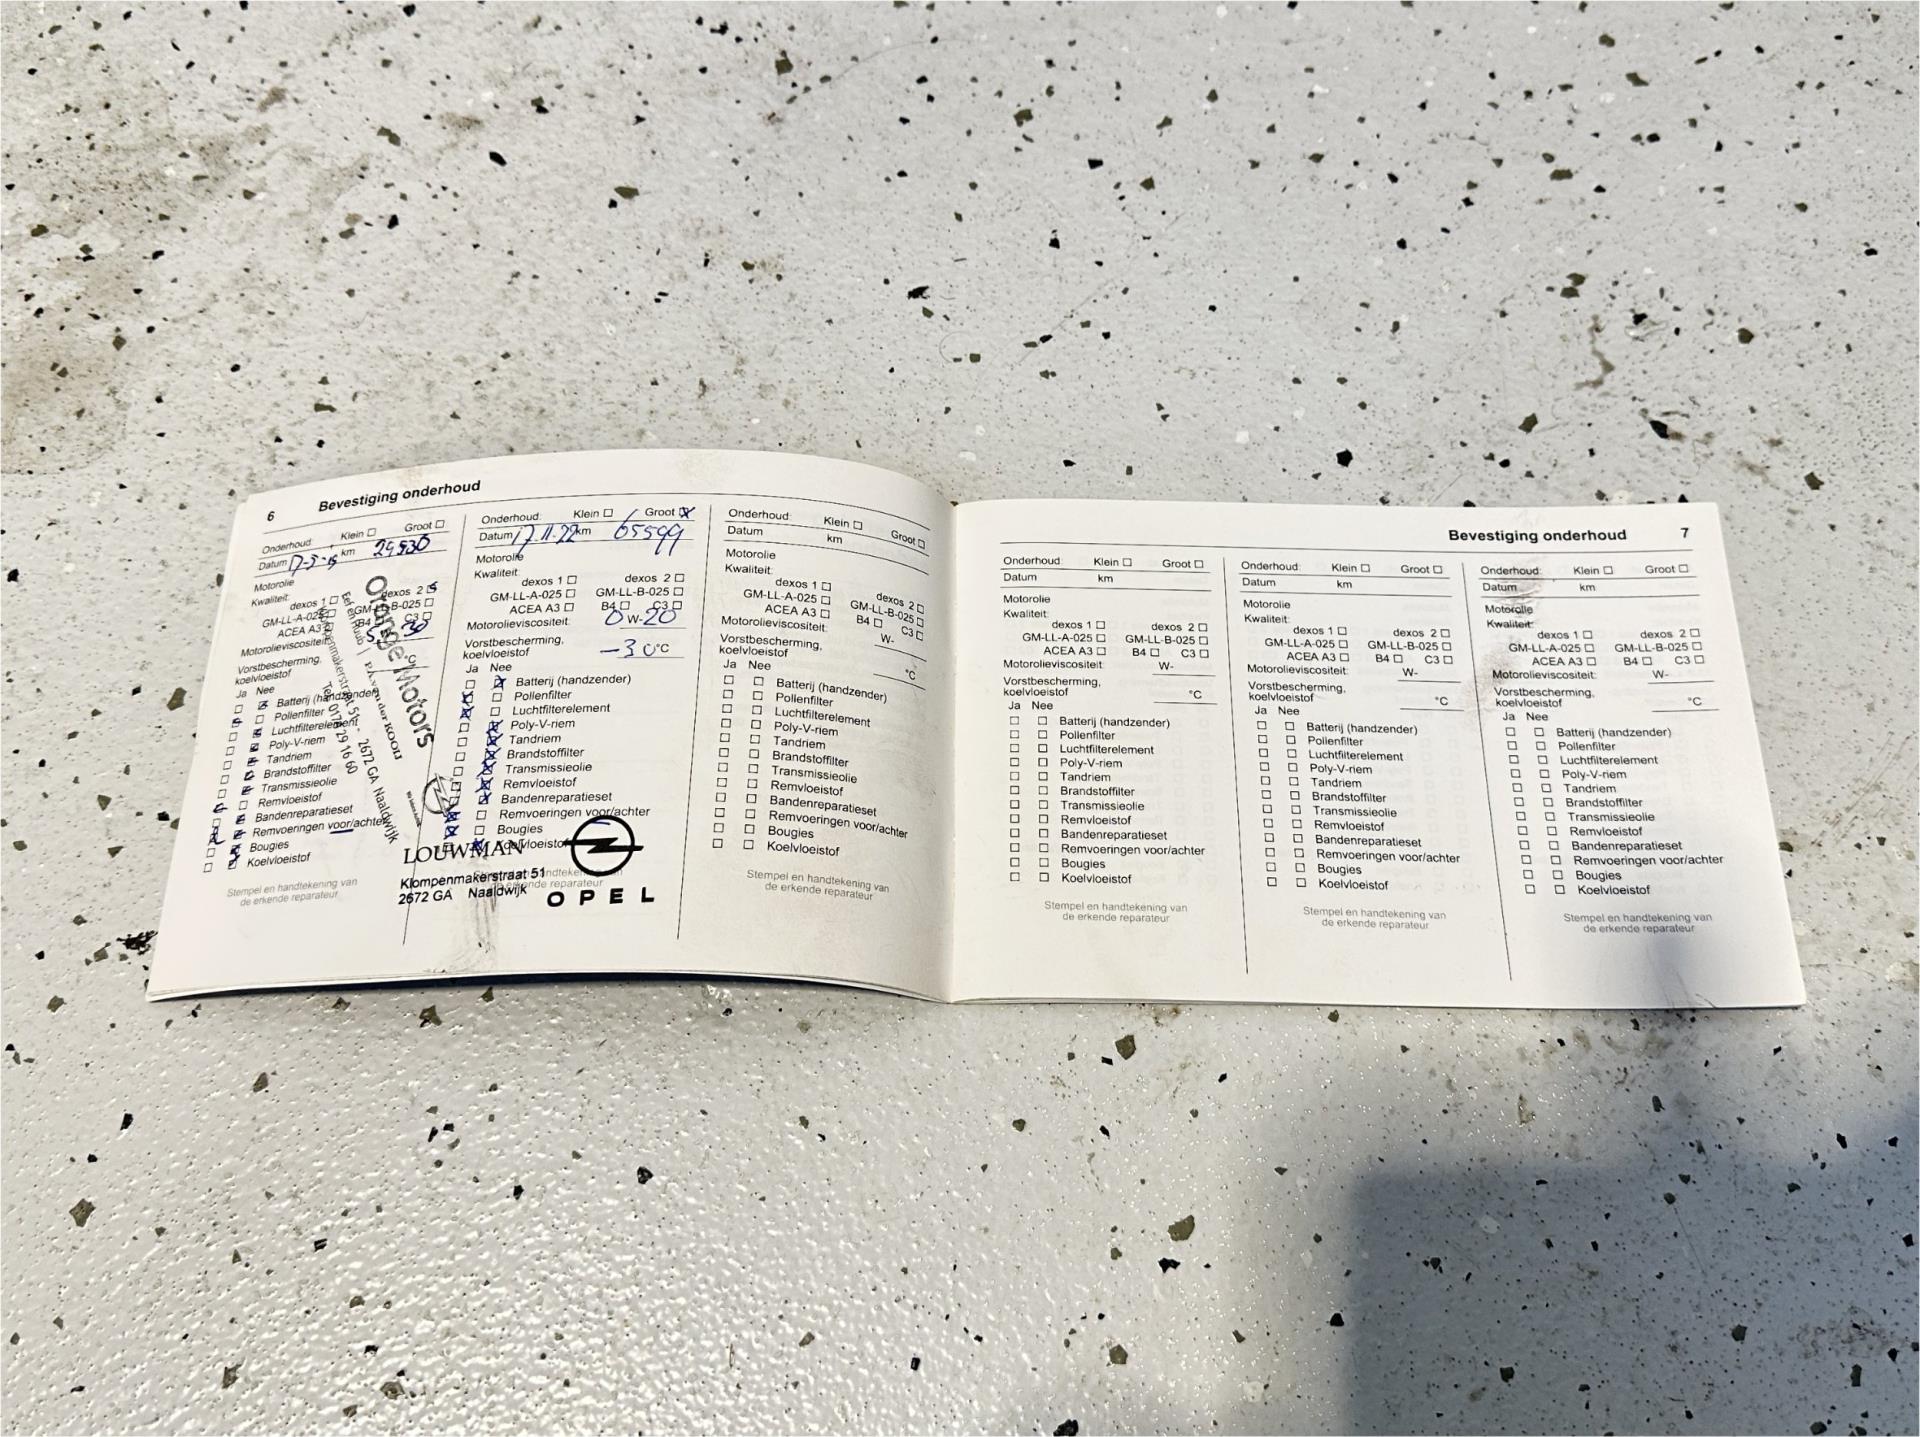 6 Bevestiging onderhoud
Onderhoud: Klein Groot
Datum km 29530
Motorolie
Kwaliteit:
dexos 1 dexos 2
GM-LL-A-025 GM-LL-B-025
ACEA A3 B4
Motorolieviscositeit: 5 30
Vorstbescherming,
koelvloeistof
Ja Nee
Batterij (handzender)
Pollenfilter
Luchtfilterelement
Poly-V-riem
Tandriem
Brandstoffilter
Transmissieolie
Remvloeistof
Bandenreparatieset
Remvoeringen voor/achter
Bougies
Koelvloeistof
Stempel en handtekening van
de erkende reparateur
Orange Motors
2672 GA Naaldwijk
Onderhoud: Klein Groot
Datum 17-11-22 km 65599
Motorolie
Kwaliteit:
dexos 1 dexos 2
GM-LL-A-025 GM-LL-B-025
ACEA A3 B4 C3
Motorolieviscositeit: 0 W- 20
Vorstbescherming,
koelvloeistof -30 °C
Ja Nee
Batterij (handzender)
Pollenfilter
Luchtfilterelement
Poly-V-riem
Tandriem
Brandstoffilter
Transmissieolie
Remvloeistof
Bandenreparatieset
Remvoeringen voor/achter
Bougies
Koelvloeistof
LOUWMAN
Klompenmakerstraat 51
2672 GA Naaldwijk
OPEL
Onderhoud: Klein Groot
Datum km
Motorolie
Kwaliteit:
dexos 1 dexos 2
GM-LL-A-025 GM-LL-B-025
ACEA A3 B4 C3
Motorolieviscositeit: W-
Vorstbescherming,
koelvloeistof °C
Ja Nee
Batterij (handzender)
Pollenfilter
Luchtfilterelement
Poly-V-riem
Tandriem
Brandstoffilter
Transmissieolie
Remvloeistof
Bandenreparatieset
Remvoeringen voor/achter
Bougies
Koelvloeistof
Stempel en handtekening van
de erkende reparateur
Bevestiging onderhoud 7
Onderhoud: Klein Groot
Datum km
Motorolie
Kwaliteit:
dexos 1 dexos 2
GM-LL-A-025 GM-LL-B-025
ACEA A3 B4 C3
Motorolieviscositeit: W-
Vorstbescherming,
koelvloeistof °C
Ja Nee
Batterij (handzender)
Pollenfilter
Luchtfilterelement
Poly-V-riem
Tandriem
Brandstoffilter
Transmissieolie
Remvloeistof
Bandenreparatieset
Remvoeringen voor/achter
Bougies
Koelvloeistof
Stempel en handtekening van
de erkende reparateur
Onderhoud: Klein Groot
Datum km
Motorolie
Kwaliteit:
dexos 1 dexos 2
GM-LL-A-025 GM-LL-B-025
ACEA A3 B4 C3
Motorolieviscositeit: W-
Vorstbescherming,
koelvloeistof °C
Ja Nee
Batterij (handzender)
Pollenfilter
Luchtfilterelement
Poly-V-riem
Tandriem
Brandstoffilter
Transmissieolie
Remvloeistof
Bandenreparatieset
Remvoeringen voor/achter
Bougies
Koelvloeistof
Stempel en handtekening van
de erkende reparateur
Onderhoud: Klein Groot
Datum km
Motorolie
Kwaliteit:
dexos 1 dexos 2
GM-LL-A-025 GM-LL-B-025
ACEA A3 B4 C3
Motorolieviscositeit: W-
Vorstbescherming,
koelvloeistof °C
Ja Nee
Batterij (handzender)
Pollenfilter
Luchtfilterelement
Poly-V-riem
Tandriem
Brandstoffilter
Transmissieolie
Remvloeistof
Bandenreparatieset
Remvoeringen voor/achter
Bougies
Koelvloeistof
Stempel en handtekening van
de erkende reparateur